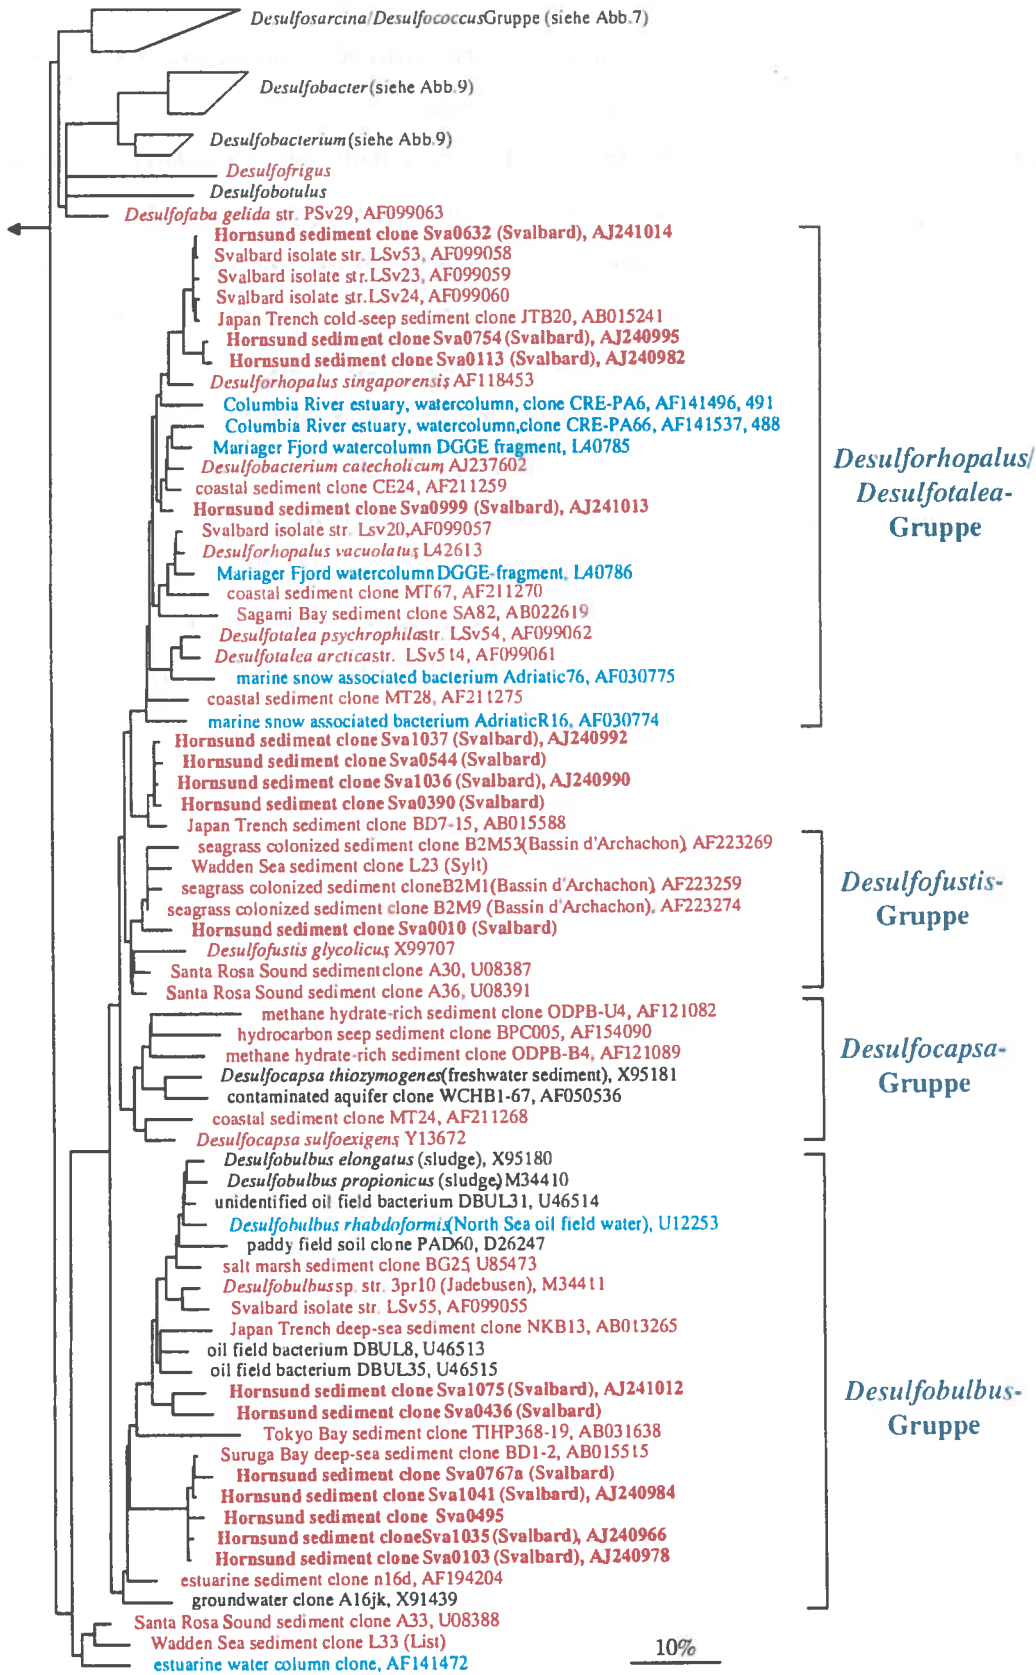 Desulfosarcina/DesulfococcusGruppe (siehe Abb.7)
Desulfobacter(siehe Abb.9)
Desulfobacterium(siehe Abb.9)
Desulfofrigus
Desulfobotulus
Desulfofaba gelida str. PSv29, AF099063
Hornsund sediment clone Sva0632 (Svalbard), AJ241014
Svalbard isolate str. LSv53, AF099058
Svalbard isolate str.LSv23, AF099059
Svalbard isolate str.LSv24, AF099060
Japan Trench cold-seep sediment clone JTB20, AB015241
Hornsund sediment clone Sva0754 (Svalbard), AJ240995
Hornsund sediment clone Sva0113 (Svalbard), AJ240982
Desulforhopalus singaporensis, AF118453
Columbia River estuary, watercolumn, clone CRE-PA6, AF141496, 491
Columbia River estuary, watercolumn,clone CRE-PA66, AF141537, 488
Mariager Fjord watercolumn DGGE fragment, L40785
Desulfobacterium catecholicum, AJ237602
coastal sediment clone CE24, AF211259
Hornsund sediment clone Sva0999 (Svalbard), AJ241013
Svalbard isolate str. Lsv20,AF099057
Desulforhopalus vacuolatus, L42613
Mariager Fjord watercolumn DGGE-fragment, L40786
coastal sediment clone MT67, AF211270
Sagami Bay sediment clone SA82, AB022619
Desulfotalea psychrophilastr. LSv54, AF099062
Desulfotalea arcticastr. LSv514, AF099061
marine snow associated bacterium Adriatic76, AF030775
coastal sediment clone MT28, AF211275
marine snow associated bacterium AdriaticR16, AF030774
Desulforhopalus/
Desulfotalea-
Gruppe
Hornsund sediment clone Sva1037 (Svalbard), AJ240992
Hornsund sediment clone Sva0544 (Svalbard)
Hornsund sediment clone Sva1036 (Svalbard), AJ240990
Hornsund sediment clone Sva0390 (Svalbard)
Japan Trench sediment clone BD7-15, AB015588
seagrass colonized sediment clone B2M53(Bassin d'Archachon), AF223269
Wadden Sea sediment clone L23 (Sylt)
seagrass colonized sediment cloneB2M1(Bassin d'Archachon), AF223259
seagrass colonized sediment clone B2M9 (Bassin d'Archachon), AF223274
Hornsund sediment clone Sva0010 (Svalbard)
Desulfofustis glycolicus, X99707
Santa Rosa Sound sedimentclone A30, U08387
Santa Rosa Sound sediment clone A36, U08391
Desulfofustis-
Gruppe
methane hydrate-rich sediment clone ODPB-U4, AF121082
hydrocarbon seep sediment clone BPC005, AF154090
methane hydrate-rich sediment clone ODPB-B4, AF121089
Desulfocapsa thiozymogenes(freshwater sediment), X95181
contaminated aquifer clone WCHB1-67, AF050536
coastal sediment clone MT24, AF211268
Desulfocapsa sulfoexigens, Y13672
Desulfocapsa-
Gruppe
Desulfobulbus elongatus (sludge), X95180
Desulfobulbus propionicus (sludge),M34410
unidentified oil field bacterium DBUL31, U46514
Desulfobulbus rhabdoformis(North Sea oil field water), U12253
paddy field soil clone PAD60, D26247
salt marsh sediment clone BG25, U85473
Desulfobulbus sp. str. 3pr10 (Jadebusen), M34411
Svalbard isolate str. LSv55, AF099055
Japan Trench deep-sea sediment clone NKB13, AB013265
oil field bacterium DBUL8, U46513
oil field bacterium DBUL35, U46515
Hornsund sediment clone Sva1075 (Svalbard), AJ241012
Hornsund sediment clone Sva0436 (Svalbard)
Tokyo Bay sediment clone TIHP368-19, AB031638
Suruga Bay deep-sea sediment clone BD1-2, AB015515
Hornsund sediment clone Sva0767a (Svalbard)
Hornsund sediment clone Sva1041 (Svalbard), AJ240984
Hornsund sediment clone Sva0495
Hornsund sediment cloneSva1035(Svalbard), AJ240966
Hornsund sediment clone Sva0103 (Svalbard), AJ240978
estuarine sediment clone n16d, AF194204
groundwater clone A16jk, X91439
Desulfobulbus-
Gruppe
Santa Rosa Sound sediment clone A33, U08388
Wadden Sea sediment clone L33 (List)
estuarine water column clone, AF141472
10%